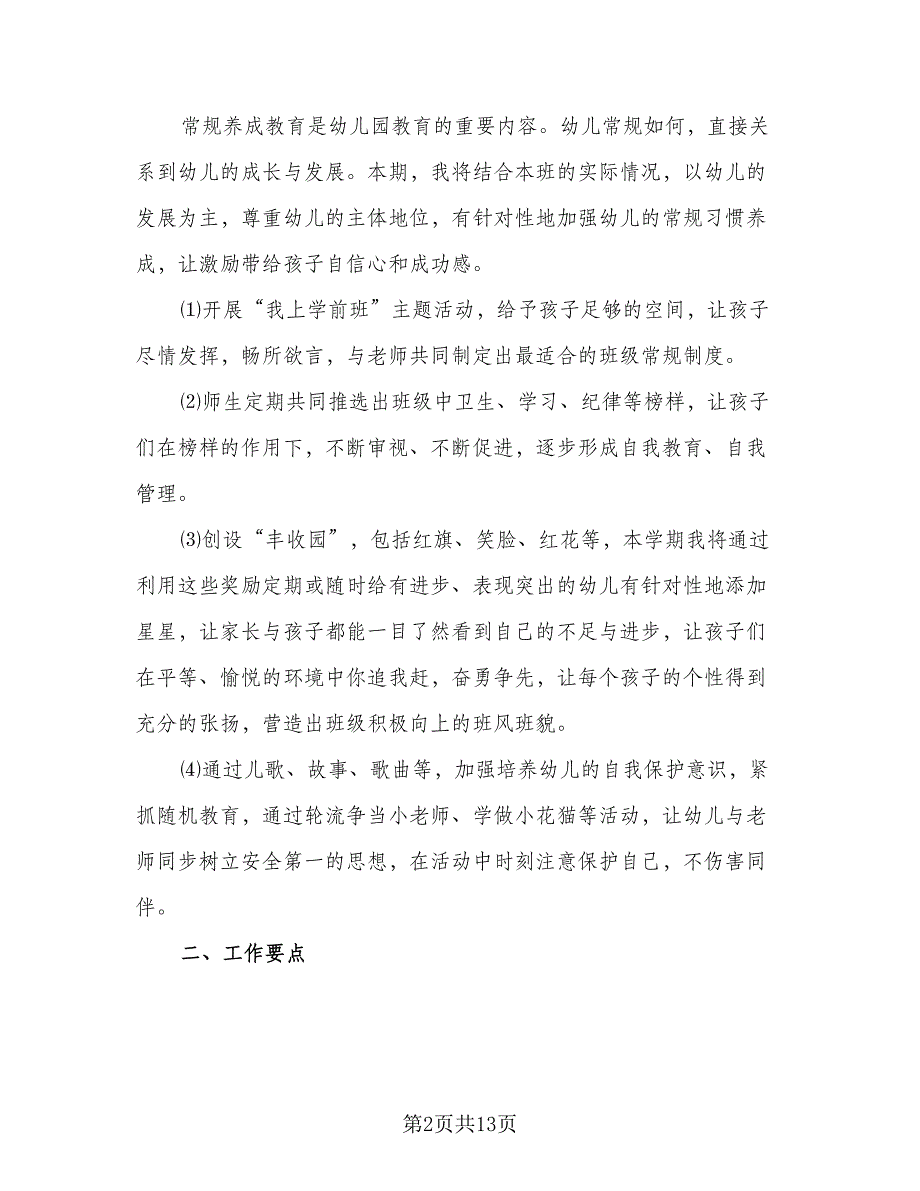 常规养成教育是幼儿园教育的重要内容。幼儿常规如何，直接关
系到幼儿的成长与发展。本期，我将结合本班的实际情况，以幼儿的
发展为主，尊重幼儿的主体地位，有针对性地加强幼儿的常规习惯养
成，让激励带给孩子自信心和成功感。
⑴开展“我上学前班”主题活动，给予孩子足够的空间，让孩子
尽情发挥，畅所欲言，与老师共同制定出最适合的班级常规制度。
⑵师生定期共同推选出班级中卫生、学习、纪律等榜样，让孩子
们在榜样的作用下，不断审视、不断促进，逐步形成自我教育、自我
管理。
⑶创设“丰收园”，包括红旗、笑脸、红花等，本学期我将通过
利用这些奖励定期或随时给有进步、表现突出的幼儿有针对性地添加
星星，让家长与孩子都能一目了然看到自己的不足与进步，让孩子们
在平等、愉悦的环境中你追我赶，奋勇争先，让每个孩子的个性得到
充分的张扬，营造出班级积极向上的班风班貌。
⑷通过儿歌、故事、歌曲等，加强培养幼儿的自我保护意识，紧
抓随机教育，通过轮流争当小老师、学做小花猫等活动，让幼儿与老
师同步树立安全第一的思想，在活动中时刻注意保护自己，不伤害同
伴。
二、工作要点
第2页共13页